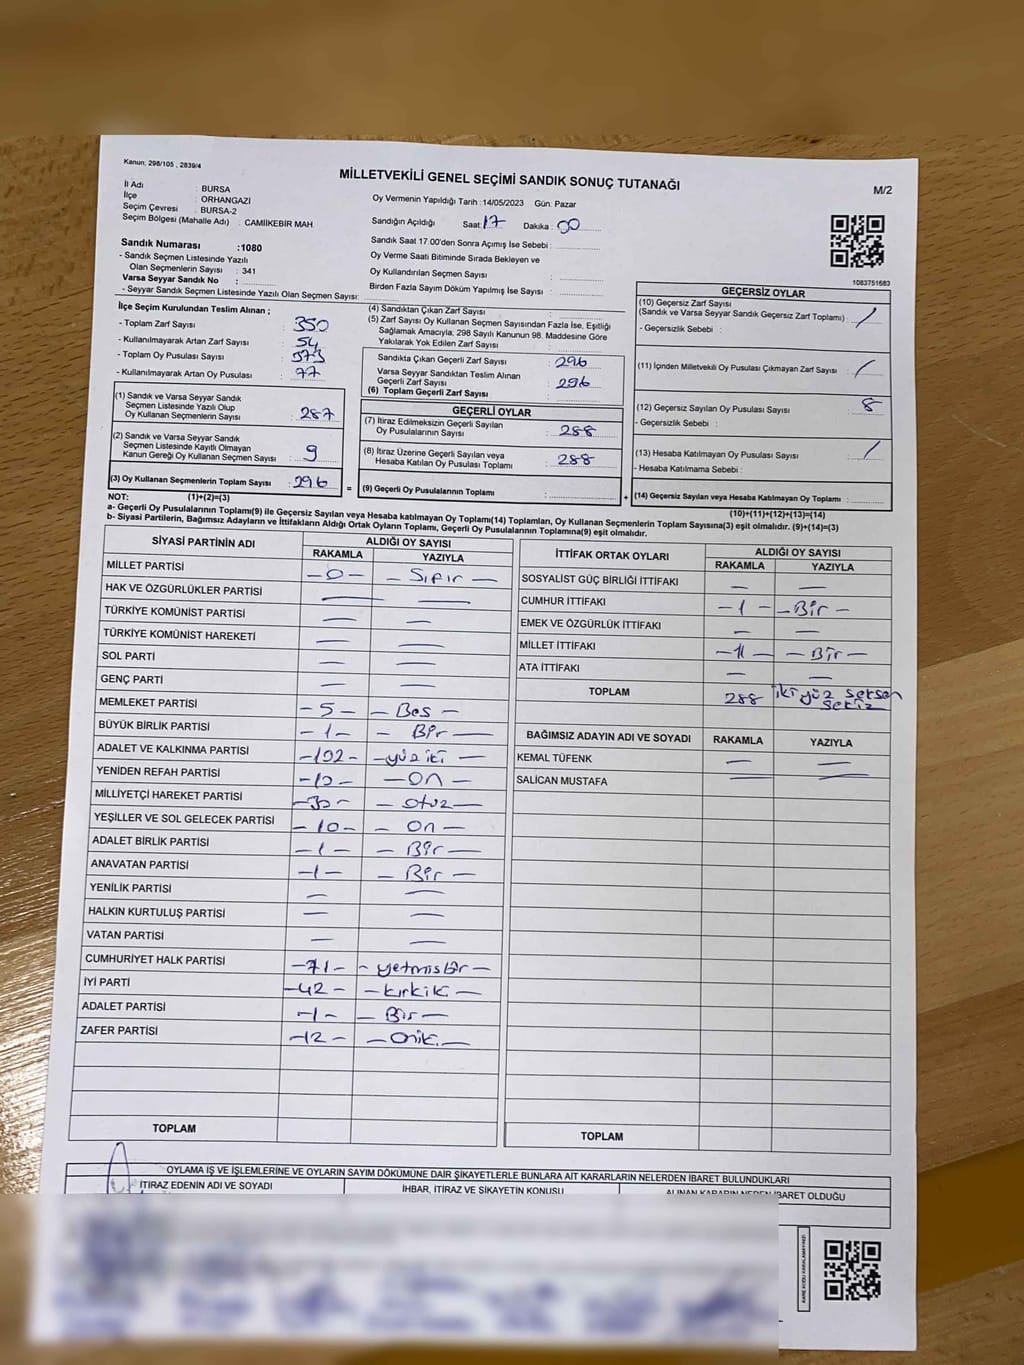 Kanun: 298/105 , 2839/4
MİLLETVEKİLİ GENEL SEÇİMİ SANDIK SONUÇ TUTANAĞI
M/2
İl Adı : BURSA
İlçe : ORHANGAZİ
Seçim Çevresi : BURSA-2
Seçim Bölgesi (Mahalle Adı) : CAMİİKEBİR MAH
Oy Vermenin Yapıldığı Tarih :14/05/2023 Gün. Pazar
Sandığın Açıldığı Saat: 17 Dakika : 00
Sandık Saat 17.00'den Sonra Açımış İse Sebebi :
Oy Verme Saati Bitiminde Sırada Bekleyen ve
Oy Kullandırılan Seçmen Sayısı :
Birden Fazla Sayım Döküm Yapılmış İse Sayısı :
Sandık Numarası :1080
- Sandık Seçmen Listesinde Yazılı
Olan Seçmenlerin Sayısı : 341
Varsa Seyyar Sandık No :
- Seyyar Sandık Seçmen Listesinde Yazılı Olan Seçmen Sayısı:
1083751683
İlçe Seçim Kurulundan Teslim Alınan ;
- Toplam Zarf Sayısı : 350
- Kullanılmayarak Artan Zarf Sayısı : 54
- Toplam Oy Pusulası Sayısı :
- Kullanılmayarak Artan Oy Pusulası : 77
(1) Sandık ve Varsa Seyyar Sandık
Seçmen Listesinde Yazılı Olup
Oy Kullanan Seçmenlerin Sayısı : 287
(2) Sandık ve Varsa Seyyar Sandık
Seçmen Listesinde Kayıtlı Olmayan
Kanun Gereği Oy Kullanan Seçmen Sayısı : 9
(3) Oy Kullanan Seçmenlerin Toplam Sayısı : 296 =
(4) Sandıktan Çıkan Zarf Sayısı :
(5) Zarf Sayısı Oy Kullanan Seçmen Sayısından Fazla İse, Eşitliği
Sağlamak Amacıyla, 298 Sayılı Kanunun 98. Maddesine Göre
Yakılarak Yok Edilen Zarf Sayısı :
Sandıkta Çıkan Geçerli Zarf Sayısı : 296
Varsa Seyyar Sandıktan Teslim Alınan
Geçerli Zarf Sayısı : 296
(6) Toplam Geçerli Zarf Sayısı :
GEÇERLİ OYLAR
(7) İtiraz Edilmeksizin Geçerli Sayılan
Oy Pusulalarının Sayısı : 288
(8) İtiraz Üzerine Geçerli Sayılan veya
Hesaba Katılan Oy Pusulası Toplamı : 288
(9) Geçerli Oy Pusulalarının Toplamı : +
GEÇERSİZ OYLAR
(10) Geçersiz Zarf Sayısı
(Sandık ve Varsa Seyyar Sandık Geçersiz Zarf Toplamı) : /
- Geçersizlik Sebebi :
(11) İçinden Milletvekili Oy Pusulası Çıkmayan Zarf Sayısı : /
(12) Geçersiz Sayılan Oy Pusulası Sayısı : 8
- Geçersizlik Sebebi :
(13) Hesaba Katılmayan Oy Pusulası Sayısı : /
- Hesaba Katılmama Sebebi :
(14) Geçersiz Sayılan veya Hesaba Katılmayan Oy Toplamı :
NOT: (1)+(2)=(3)
(10)+(11)+(12)+(13)=(14)
a- Geçerli Oy Pusulalarının Toplamı(9) ile Geçersiz Sayılan veya Hesaba katılmayan Oy Toplamı(14) Toplamları, Oy Kullanan Seçmenlerin Toplam Sayısına(3) eşit olmalıdır. (9)+(14)=(3)
b- Siyasi Partilerin, Bağımsız Adayların ve İttifakların Aldığı Ortak Oyların Toplamı, Geçerli Oy Pusulalarının Toplamına(9) eşit olmalıdır.
SİYASİ PARTİNİN ADI ALDIĞI OY SAYISI
RAKAMLA YAZIYLA
MİLLET PARTİSİ -0- - Sıfır -
HAK VE ÖZGÜRLÜKLER PARTİSİ — —
TÜRKİYE KOMÜNİST PARTİSİ — —
TÜRKİYE KOMÜNİST HAREKETİ — —
SOL PARTİ — —
GENÇ PARTİ — —
MEMLEKET PARTİSİ -5- - Beş -
BÜYÜK BİRLİK PARTİSİ -1- - Bir -
ADALET VE KALKINMA PARTİSİ -102- -yüz iki -
YENİDEN REFAH PARTİSİ -10- -On -
MİLLİYETÇİ HAREKET PARTİSİ -30- - otuz -
YEŞİLLER VE SOL GELECEK PARTİSİ -10- - On -
ADALET BİRLİK PARTİSİ -1- - Bir -
ANAVATAN PARTİSİ -1- - Bir -
YENİLİK PARTİSİ — —
HALKIN KURTULUŞ PARTİSİ — —
VATAN PARTİSİ — —
CUMHURİYET HALK PARTİSİ -71- - yetmişbir -
İYİ PARTİ -42- - kırkiki -
ADALET PARTİSİ -1- - Bir -
ZAFER PARTİSİ -12- - Oniki -
TOPLAM
İTTİFAK ORTAK OYLARI ALDIĞI OY SAYISI
RAKAMLA YAZIYLA
SOSYALİST GÜÇ BİRLİĞİ İTTİFAKI — —
CUMHUR İTTİFAKI -1- -Bir -
EMEK VE ÖZGÜRLÜK İTTİFAKI — —
MİLLET İTTİFAKI -1- - Bir -
ATA İTTİFAKI — —
TOPLAM 288 iki yüz seksen
sekiz
BAĞIMSIZ ADAYIN ADI VE SOYADI RAKAMLA YAZIYLA
KEMAL TÜFENK — —
SALİCAN MUSTAFA — —
TOPLAM
OYLAMA İŞ VE İŞLEMLERİNE VE OYLARIN SAYIM DÖKÜMÜNE DAİR ŞİKAYETLERLE BUNLARA AİT KARARLARIN NELERDEN İBARET BULUNDUKLARI
İTİRAZ EDENİN ADI VE SOYADI İHBAR, İTİRAZ VE ŞİKAYETİN KONUSU ALINAN KARARIN NEDEN İBARET OLDUĞU
KARE KODU KARALAMAYINIZ!